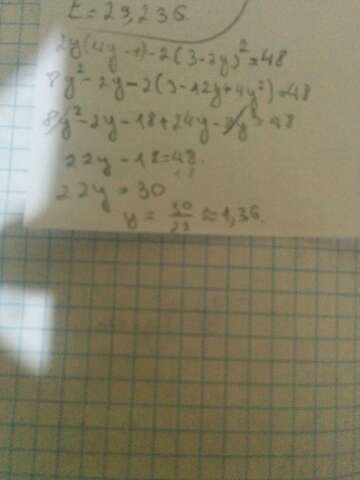 t = 29,236
2y(4y-1)-2(3-2y)²=48
8y²-2y-2(9-12y+4y²)=48
8y²-2y-18+24y-8y²=48
22y-18=48.
18
22y=30
y = 30/22 ≈1,36.